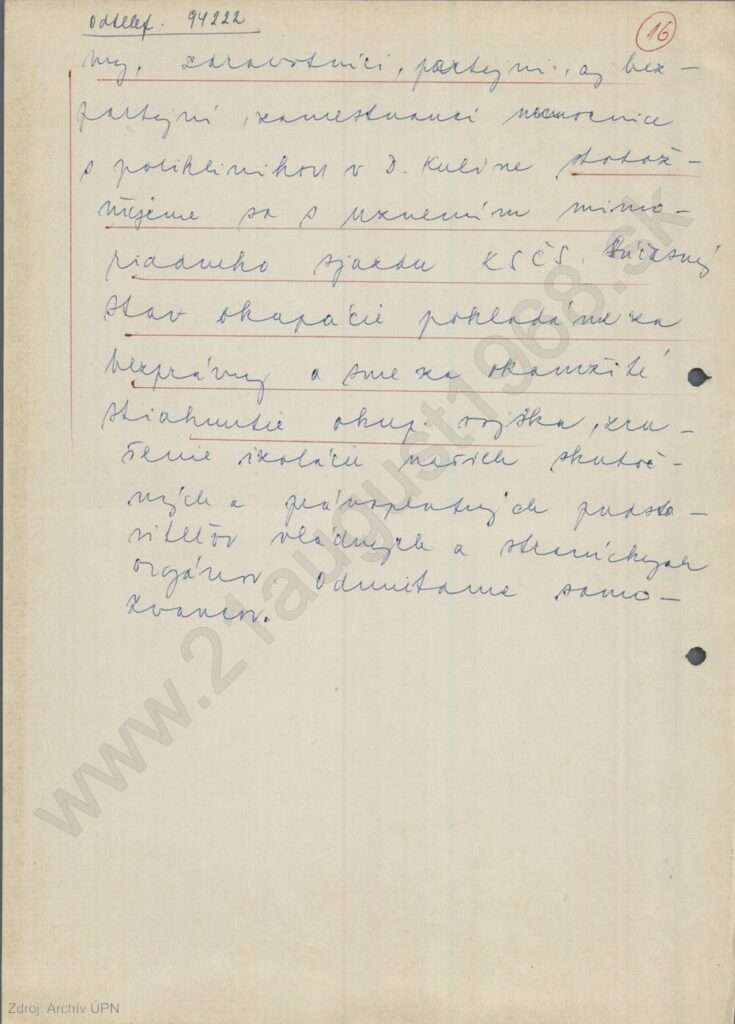 Odtelef. 94222
16
My, zdravotníci, partajní, aj bez-
partajní, zamestnanci nemocnice
s poliklinikou v D. Kubíne stotož-
ňujeme sa s uznesením mimo-
riadneho sjazdu KSČS. Súčasný
stav okupácie pokladáme za
bezprávny a sme za okamžité
stiahnutie okup. vojska, zru-
šenie izolácie našich skutoč-
ných a právoplatných predsta-
viteľov vládnych a straníckych
orgánov. Odmietame samo-
zvancov.
www.21august1968.sk
Zdroj: Archív ÚPN